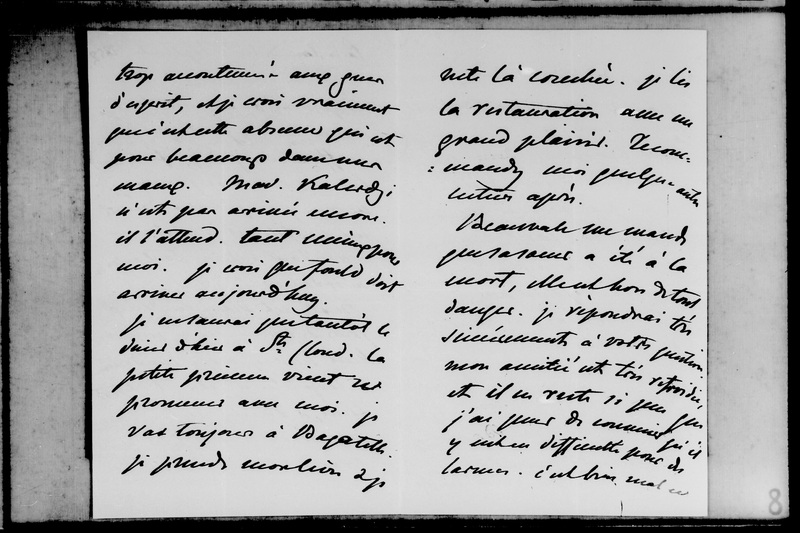 trop accoutumée aux gens
d'esprit, et je crois vraiment
que c'est cette absence qui est
pour beaucoup dans mes
maux. Mad. Kalerdji
n'est pas arrivée encore.
il l'attend. tant mieux pour
moi. je crois que fould doit
arriver aujourd'huy.
je ne saurai que tantôt le
diner d'hier à St. Cloud. la
petite princesse vient se
promener avec moi. je
vais toujours à Bagatelle.
je prends mon livre & je
reste là couchée. je lis
la restauration avec un
grand plaisir. Recom=
=mandez moi quelqu'autre
lecture après.
Beauvale me mande
que sa sœur a été à la
mort, elle est hors de tout
danger. je répondrai très
sincèrement à votre question
mon amitié est très refroidie,
et il en reste si peu que
j'ai peur de
y en
larmes. c'est bien mal
8